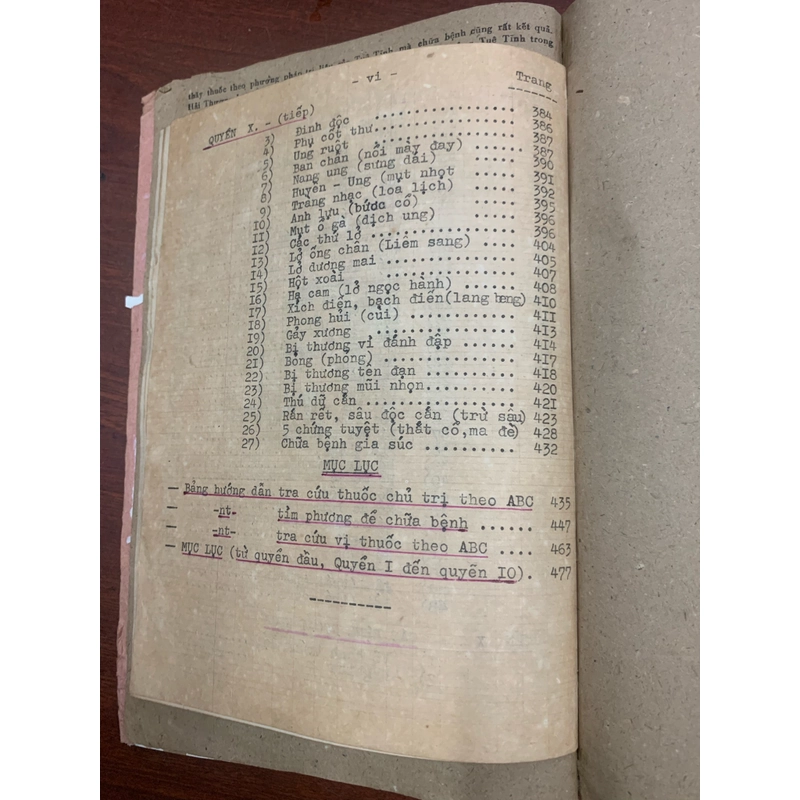 thầy thuốc theo phương pháp trị liệu của Tuệ Tĩnh mà chữa bệnh cũng rất kết quả.
Hải Thượng Tuệ Tĩnh trong
- vi -
Trang
QUYỂN X. - (tiếp)
3) Đinh độc .......... 384
4) Phụ cốt thư .......... 386
5) Ung ruột .......... 387
6) Ban chẩn (nổi mày đay) ..... 387
7) Nang ung (sưng dái) ..... 390
8) Huyền - Ung (mụt nhọt ..... 391
9) Tràng nhạc (loa lịch) ..... 392
10) Anh lựu (bước cổ) ..... 395
11) Mụt ổ gà (dịch ung) ..... 396
12) Các thứ lở .......... 396
13) Lở ống chân (Liêm sang) .... 404
14) Lở dương mai .......... 405
15) Hột xoài .......... 407
16) Hạ cam (lở ngọc hành) ..... 408
17) Xích điến, bạch điến(lang beng) 410
18) Phong hủi (cùi) .......... 411
19) Gẫy xương .......... 413
20) Bị thương vì đánh đập ..... 414
21) Bỏng (phỏng) .......... 417
22) Bị thương tên đạn .......... 418
23) Bị thương mũi nhọn.......... 420
24) Thú dữ cắn .......... 421
25) Rắn rết, sâu độc cắn (trừ sâu) 423
26) 5 chứng tuyệt (thắt cổ,ma đè) 428
27) Chữa bệnh gia súc .......... 432
MỤC LỤC
- Bảng hướng dẫn tra cứu thuốc chủ trị theo ABC 435
- -nt- tìm phương để chữa bệnh ...... 447
- -nt- tra cứu vị thuốc theo ABC .... 463
- MỤC LỤC (từ quyển đầu, Quyển I đến quyển 10). 477